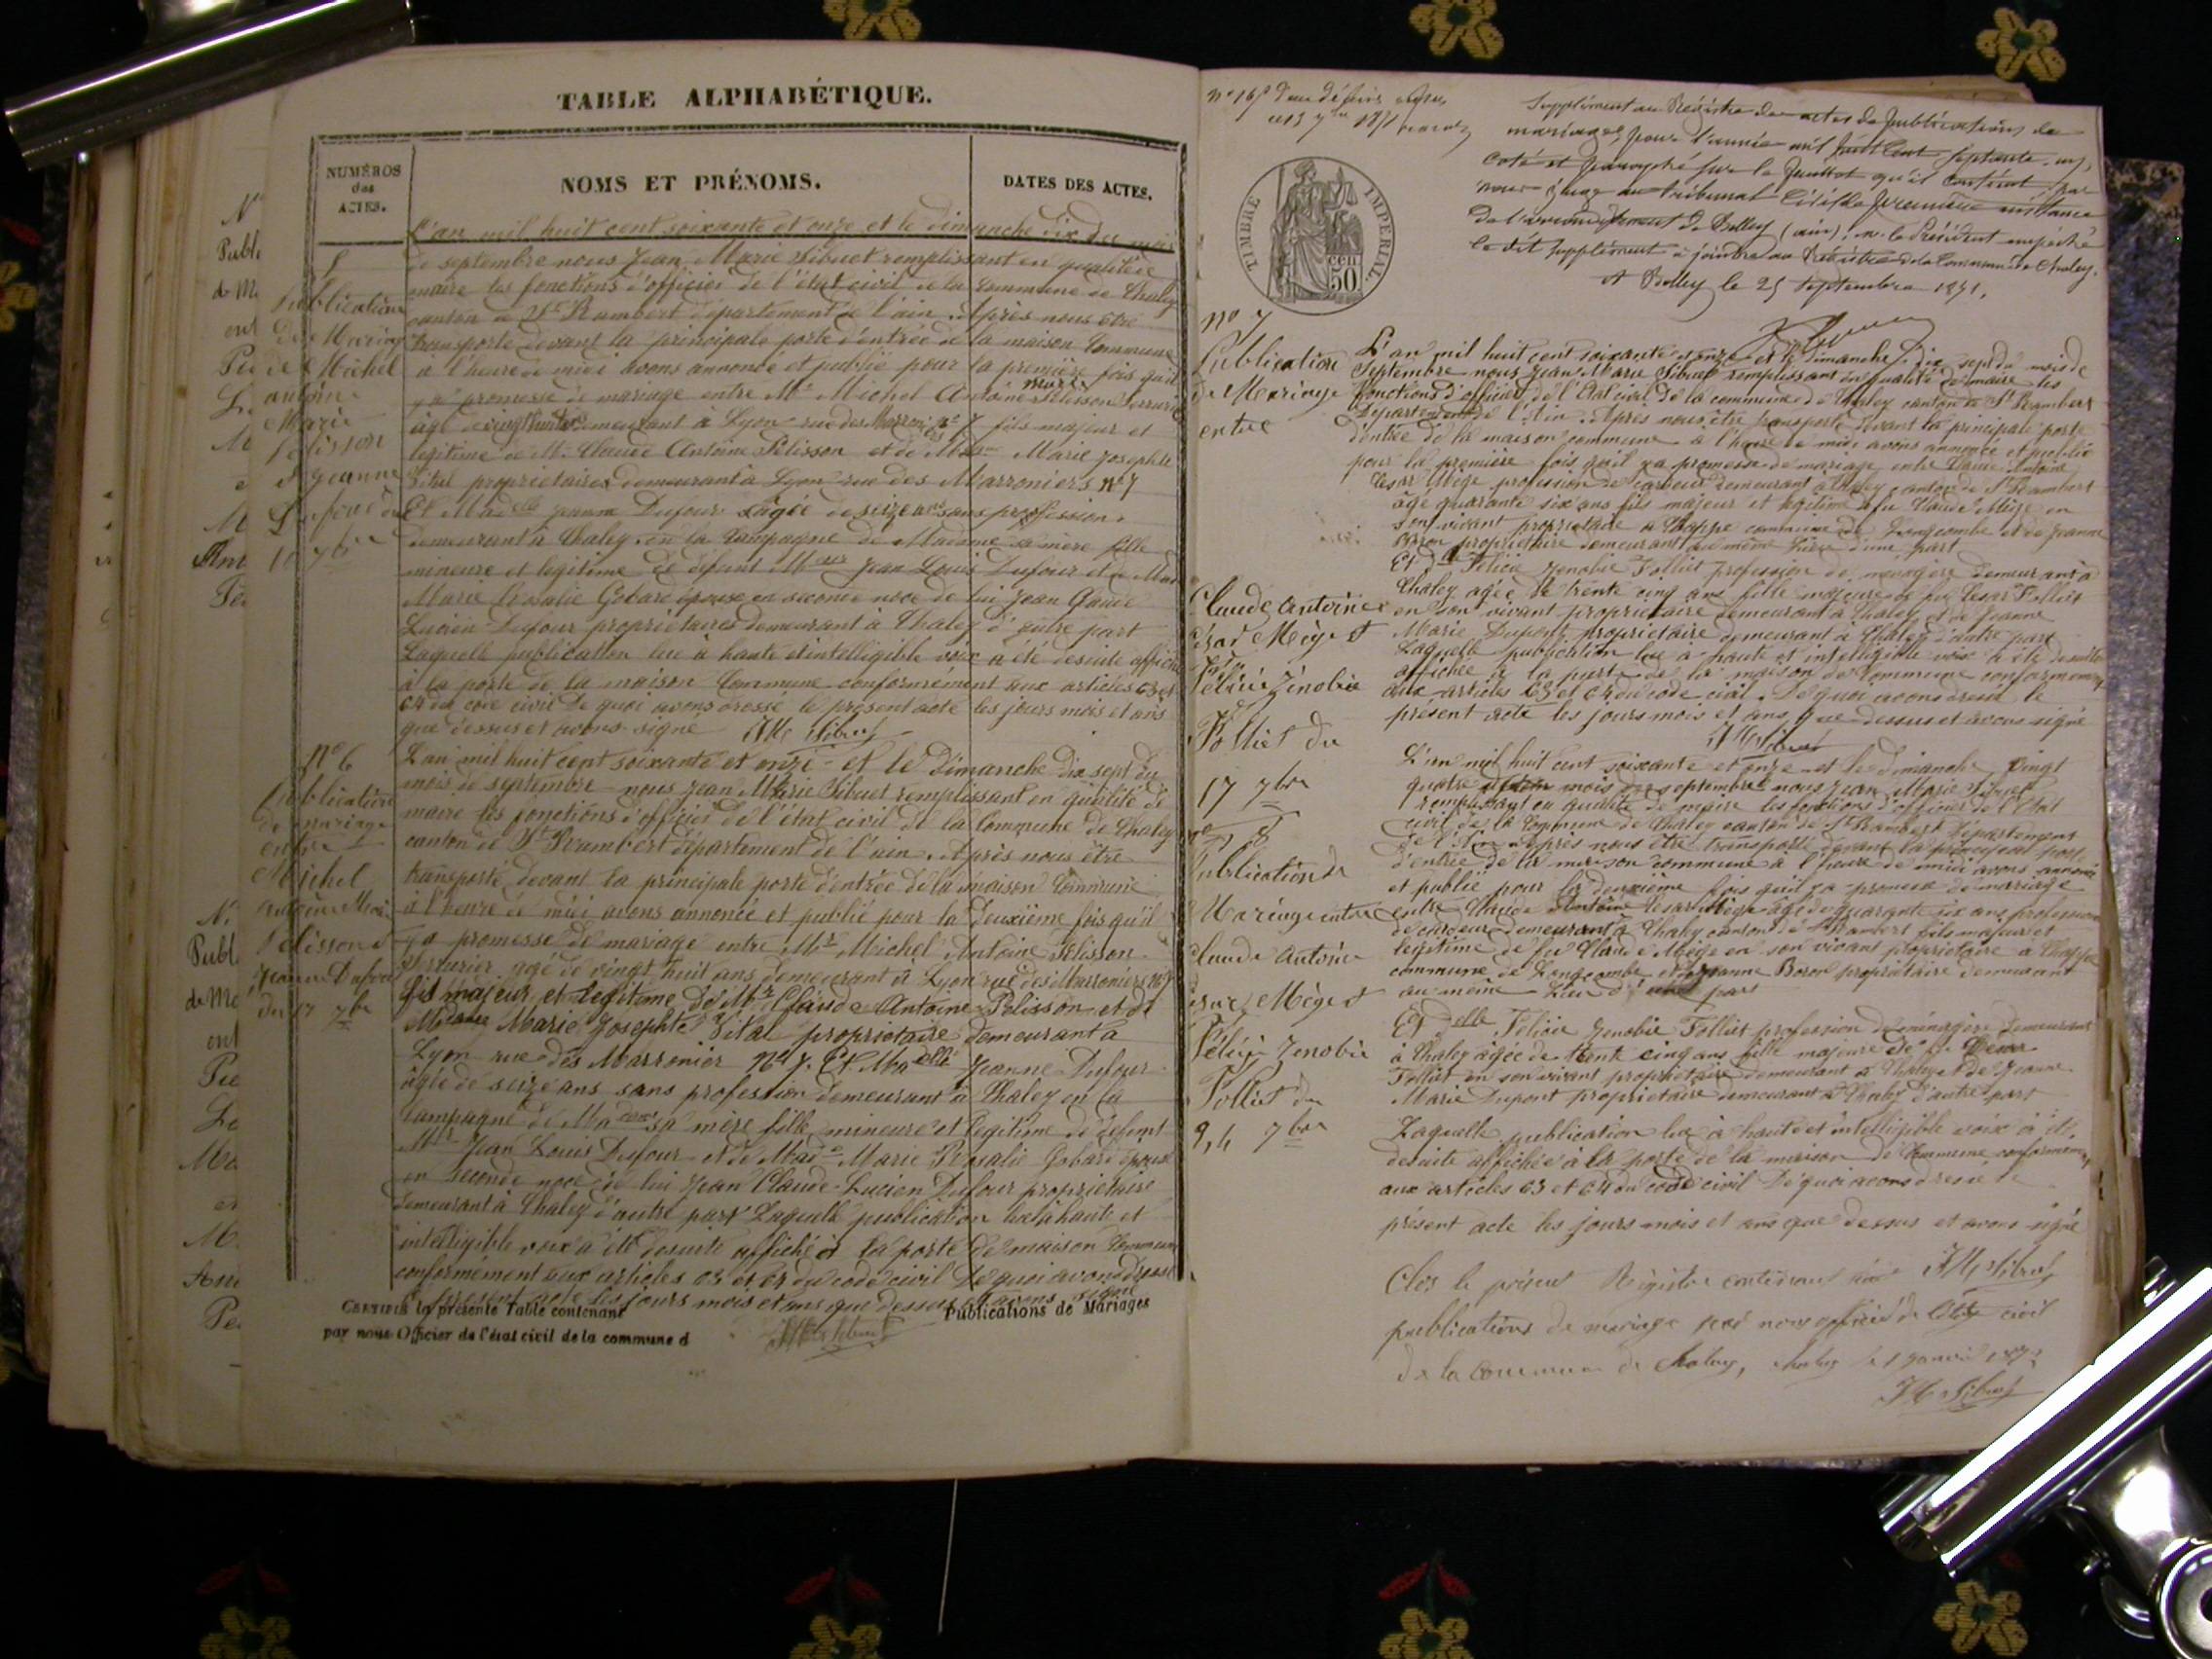 TABLE ALPHABÉTIQUE.
NUMÉROS
des
ACTES.
NOMS ET PRÉNOMS.
DATES DES ACTES.
Publication
de Mariage
de Michel
antoine
Marie
Pelisson
et Jeanne
Dufour du
10 7bre
L'an mil huit cent soixante et onze et le dimanche dix du mois
de septembre nous Jean Marie Sibuet remplissant en qualité de
maire les fonctions d'officier de l'état civil de la commune de Chaley
canton de St Rambert département de l'ain. Après nous être
transporté devant la principale porte d'entrée de la maison Commune
à l'heure de midi avons annoncé et publié pour la première fois qu'il
y a promesse de mariage entre Mr Michel Antoine Marie Pelisson Serrurier
âgé de vingt huit ans demeurant à Lyon rue des Marroniers no 7 fils majeur et
legitime de M. Claude Antoine Pelisson et de Mdme Marie Josephte
Vital propriétaires demeurant à Lyon rue des Marroniers No 7
Et Madelle Jeanne Dufour âgée de seize ans sans profession
demeurant à Chaley en la Campagne de Madame sa mère fille
mineure et legitime de défunt Jean Louis Dufour et de
Marie Rosalie Gobare épouse en seconde noce de lui Jean Claude
Lucien Dufour propriétaires demeurant à Chaley d'autre part
Laquelle publication lue à haute et intelligible voix a été desuite affichée
à la porte de la maison Commune conformément aux articles 63 et
64 du code civil De quoi avons dressé le présent acte les jours mois et ans
que dessus et avons signé JM Sibuet
No 6
Publication
de mariage
entre
Michel
antoine Marie
Pelisson et
Jeanne Dufour
du 17 7bre
L'an mil huit cent soixante et onze et le Dimanche dix sept du
mois de septembre nous Jean Marie Sibuet remplissant en qualité de
maire les fonctions d'officier de l'état civil de la Commune de Chaley
canton de St Rambert département de l'ain. Après nous être
transporté devant la principale porte d'entrée de la maison Commune
à l'heure de midi avons annoncé et publié pour la deuxième fois qu'il
y a promesse de mariage entre Mr Michel Antoine Pelisson
Serrurier agé de vingt huit ans demeurant à Lyon rue des Marroniers no 7
fils majeur et legitime de Mr Claude Antoine Pelisson et de
Mdame Marie Josephte Vital propriétaire demeurant à
Lyon rue des Marronier No 7. Et Madelle Jeanne Dufour
âgée de seize ans sans profession demeurant à Chaley en la
Campagne de Madame sa mère fille mineure et legitime de defunt
Mr Jean Louis Dufour et de Made Marie Rosalie Gobare épouse
en seconde noce de lui Jean Claude Lucien Dufour propriétaire
demeurant à Chaley d'autre part Laquelle publication lue à haute et
intelligible voix a été desuite affiché à la porte de maison Commune
conformément aux articles 63 et 64 du code civil De quoi avons dressé
le présent acte les jours mois et ans que dessus et avons signé
CERTIFIÉ la présente Table contenant
Publications de Mariages
par nous Officier de l'état civil de la commune d
JM Sibuet
Supplément au Régistre des actes de publications de
mariages, pour l'année mil huit cent septante un,
coté et paraphé sur le feuillet qu'il contient par
nous juge au tribunal Civil de première instance
de l'arrondissement de Belley (ain), M. le Président empêché
le dit supplément à joindre au Régistre de la Commune de Chaley.
A Belley le 25 septembre 1871.
TIMBRE IMPÉRIAL
50 cen
No 7
Publication
de Mariage
entre
Claude Antoine
César Mège et
Félicie Zénobie
Folliet du
17 7bre
L'an mil huit cent soixante et onze et le Dimanche dix sept du mois de
Septembre nous Jean Marie Sibuet remplissant en qualité de maire les
fonctions d'officier de l'Etat civil de la commune de Chaley canton de St Rambert
Département de l'Ain. Après nous être transporté devant la principale porte
d'entrée de la maison commune à l'heure de midi avons annoncé et publié
pour la première fois qu'il y a promesse de mariage entre Claude Antoine
César Mège profession de cardeur demeurant à Chaley canton de St Rambert
âgé quarante six ans fils majeur et légitime à feu Claude Mège en
son vivant propriétaire à Chappe commune de Longcombe et de Jeanne
Boron propriétaire demeurant au même Lieu d'une part
Et dlle Félicie Zénobie Folliet profession de ménagère demeurant à
Chaley agée de trente cinq ans fille majeure de feu César Folliet
en son vivant propriétaire demeurant à Chaley et de Jeanne
Marie Dupont propriétaire demeurant à Chaley d'autre part
Laquelle publication lue à haute et intelligible voix a été desuite
affichée à la porte de la maison de Commune conformément
aux articles 63 et 64 du code civil. De quoi avons dressé le
présent acte les jours mois et ans que dessus et avons signé
JM Sibuet
no 8
Publication de
Mariage entre
Claude Antoine
César Mège et
Félicie Zenobie
Folliet du
24 7bre
L'an mil huit cent soixante et onze et le dimanche vingt
quatre du mois de septembre nous Jean Marie Sibuet
remplissant en qualité de maire les fonctions d'officier de l'Etat
civil de la Commune de Chaley canton de St Rambert Département
de l'Ain. Après nous être transporté devant la principale porte
d'entrée de la maison commune à l'heure de midi avons annoncé
et publié pour la deuxième fois qu'il y a promesse de mariage
entre Claude Antoine César Mège âgé de quarante six ans profession
de cardeur demeurant à Chaley canton de St Rambert fils majeur et
legitime de feu Claude Mège en son vivant propriétaire à Chappe
commune de Longcombe et Jeanne Boron propriétaire demeurant
au même Lieu d'une part
Et delle Félicie Zenobie Folliet profession de ménagère demeurant
à Chaley âgée de trente cinq ans fille majeure de feu César
Folliet en son vivant propriétaire demeurant à Chaley et de Jeanne
Marie Dupont propriétaire demeurant à Chaley d'autre part
Laquelle publication lue à haute et intelligible voix à été
desuite affichée à la porte de la maison de Commune conformément
aux articles 63 et 64 du code civil De quoi avons dressé le
présent acte les jours mois et ans que dessus et avons signé
JM Sibuet
Clos le présent Régistre contenant
publications de mariage par nous officier de l'état civil
de la Commune de Chaley, Chaley le 1 janvier 1872
JM Sibuet